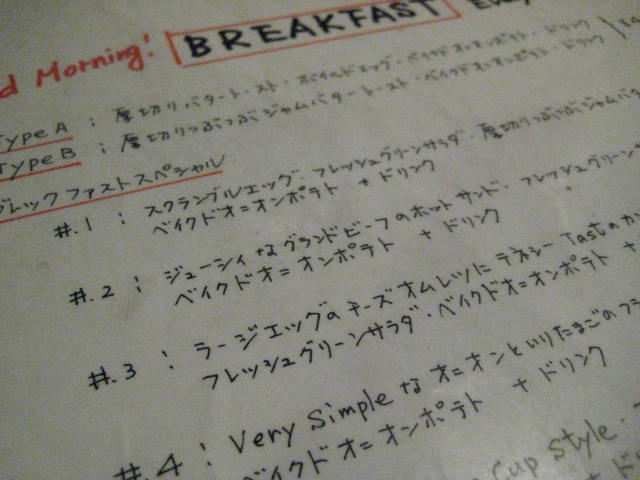 d Morning! BREAKFAST Eve
Type A : 厚切りバタートースト・ボイルドエッグ・ベイクドオニオンポテト・ドリンク
Type B : 厚切りつぶつぶジャムバタートースト・ベイクドオニオンポテト・ドリンク
ブレックファストスペシャル
#.1 : スクランブルエッグ・フレッシュグリーンサラダ・厚切りつぶつぶジャムバタ
ベイクドオニオンポテト + ドリンク
#.2 : ジューシィなグランドビーフのホットサンド・フレッシュグリーンサ
ベイクドオニオンポテト + ドリンク
#.3 : ラージエッグのチーズオムレツにテネシーTastの
フレッシュグリーンサラダ・ベイクドオニオンポテト +
#.4 : Very Simpleなオニオンといりたまごのフラ
ベイクドオニオンポテト + ドリンク
Cup style・
+ ド